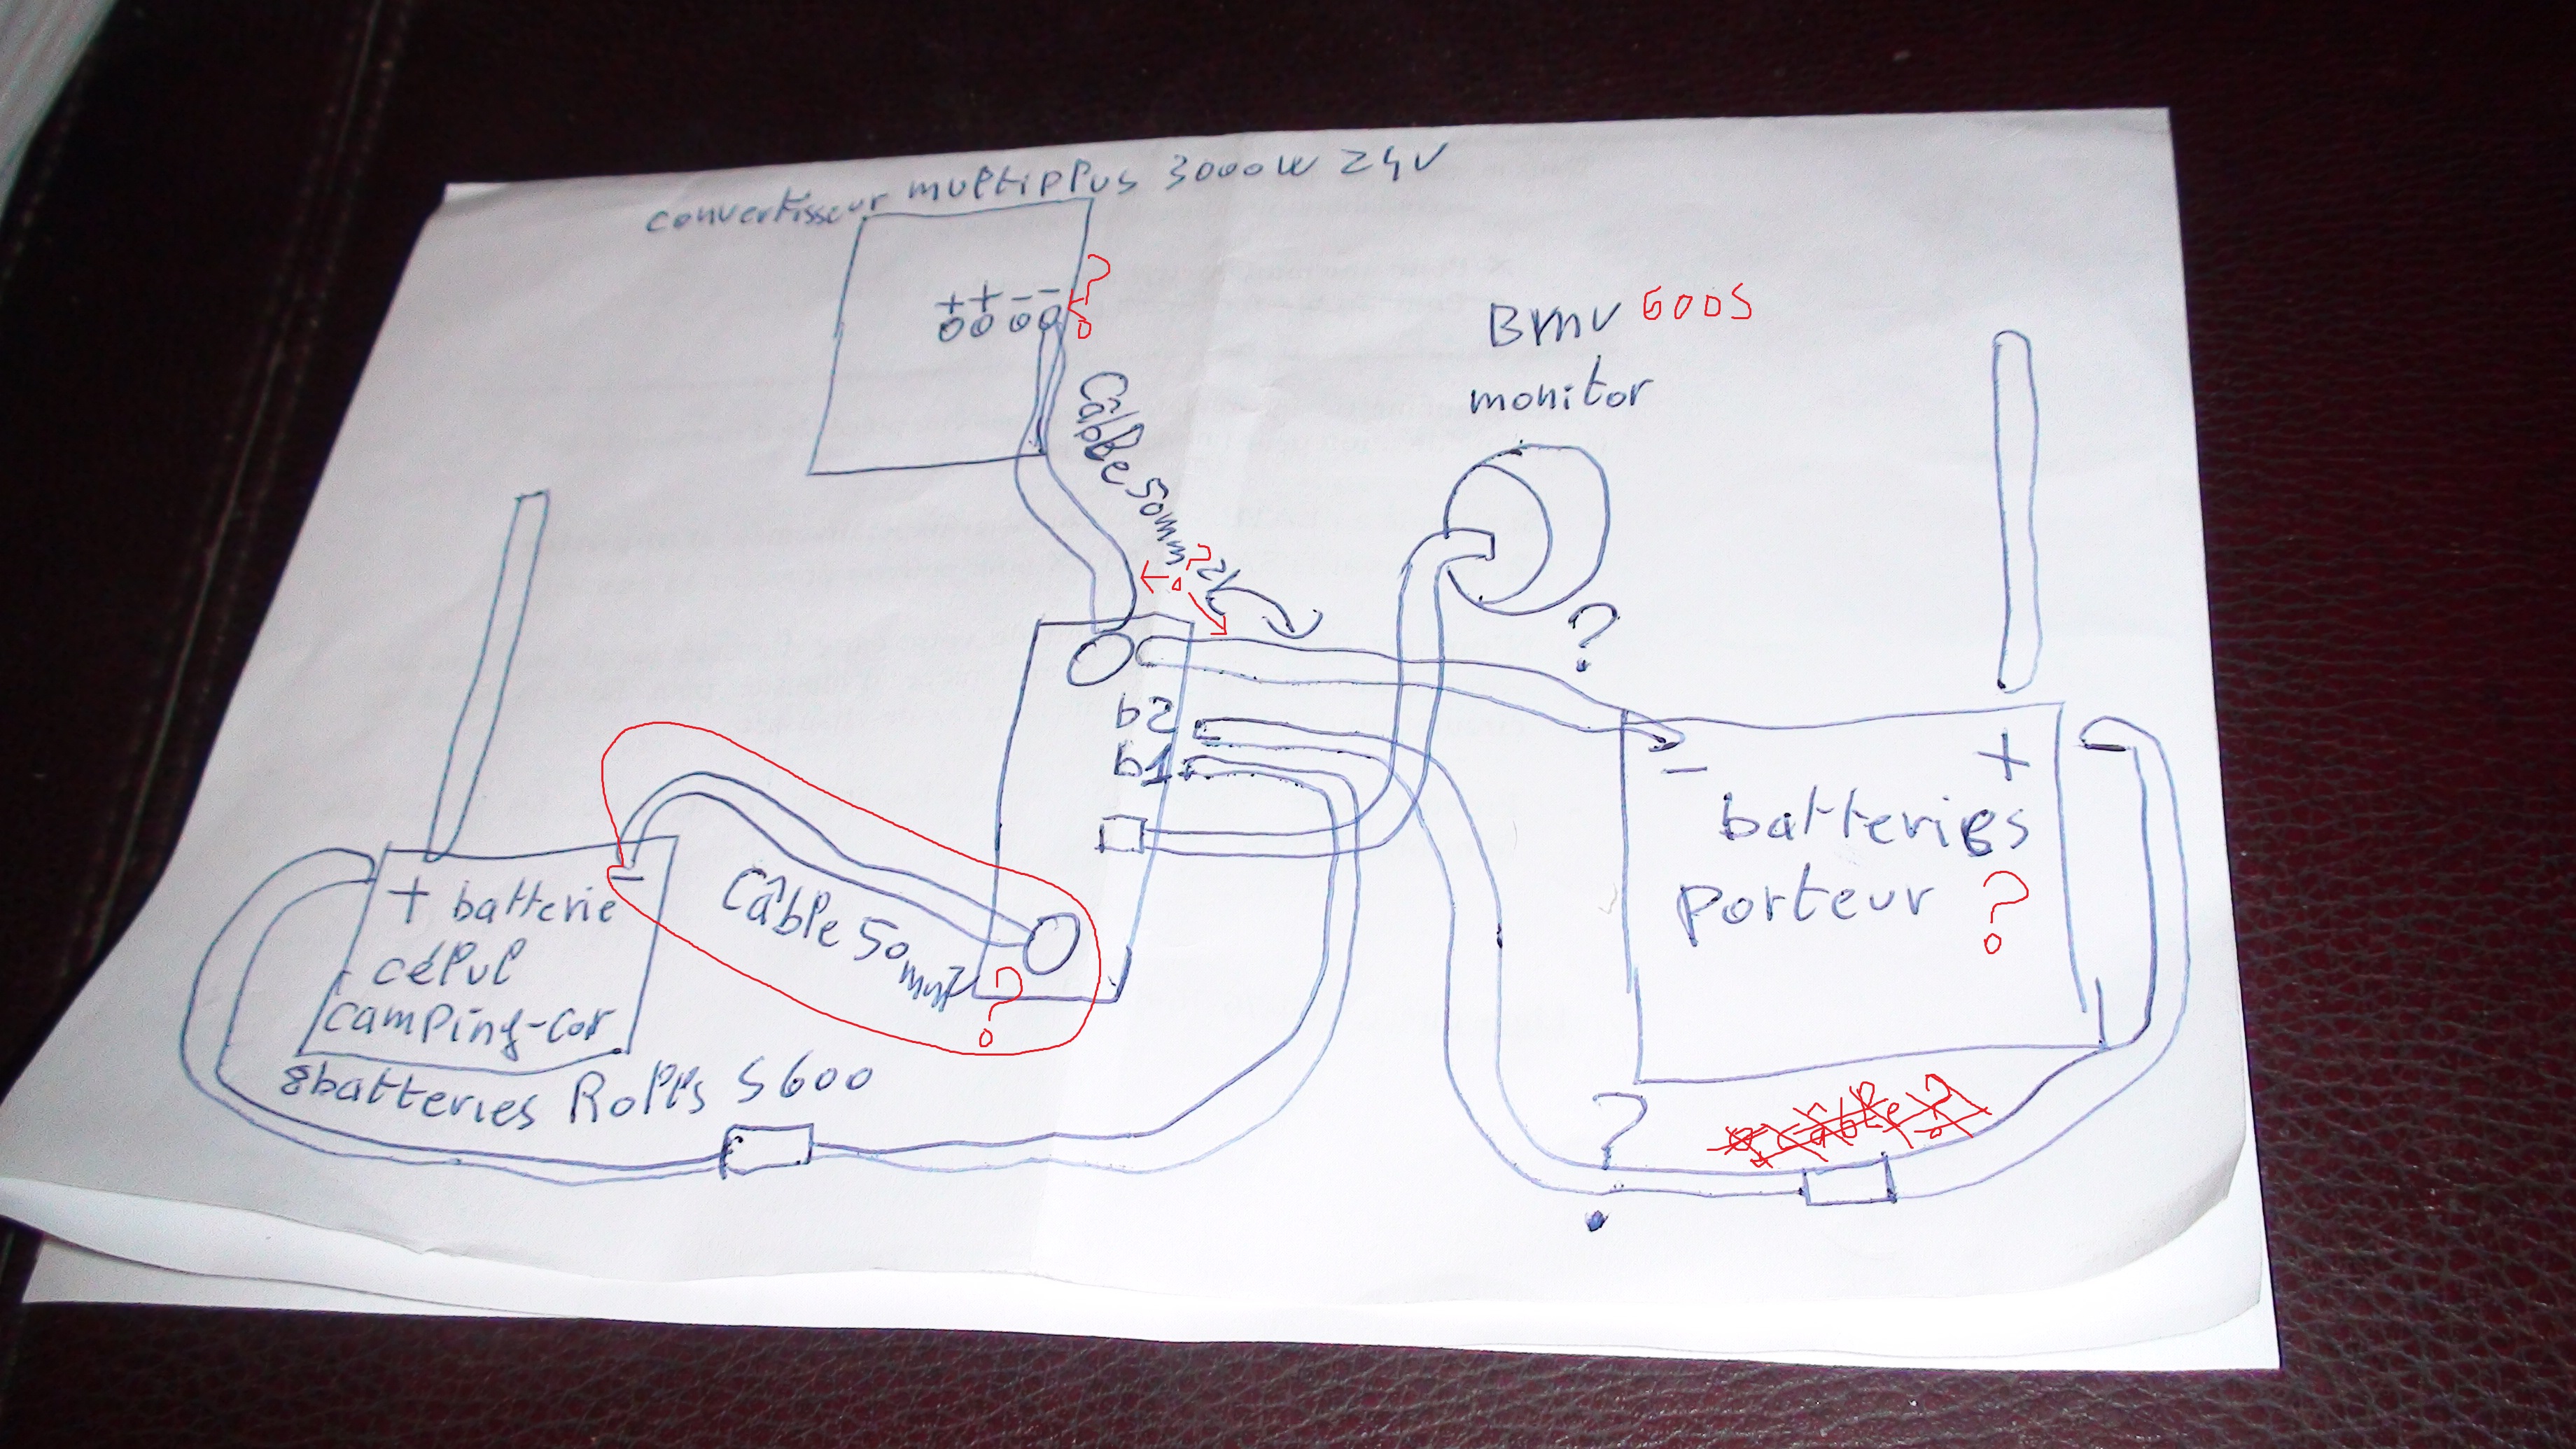 convertisseur multiplus 3000W 24V
++--
?
Câble 50mm2
?
BMV 600S
monitor
?
b2
b1
- +
batteries
porteur ?
+ batterie -
célul
camping-car
8 batteries Rolls S600
Câble 50mm2
?
?